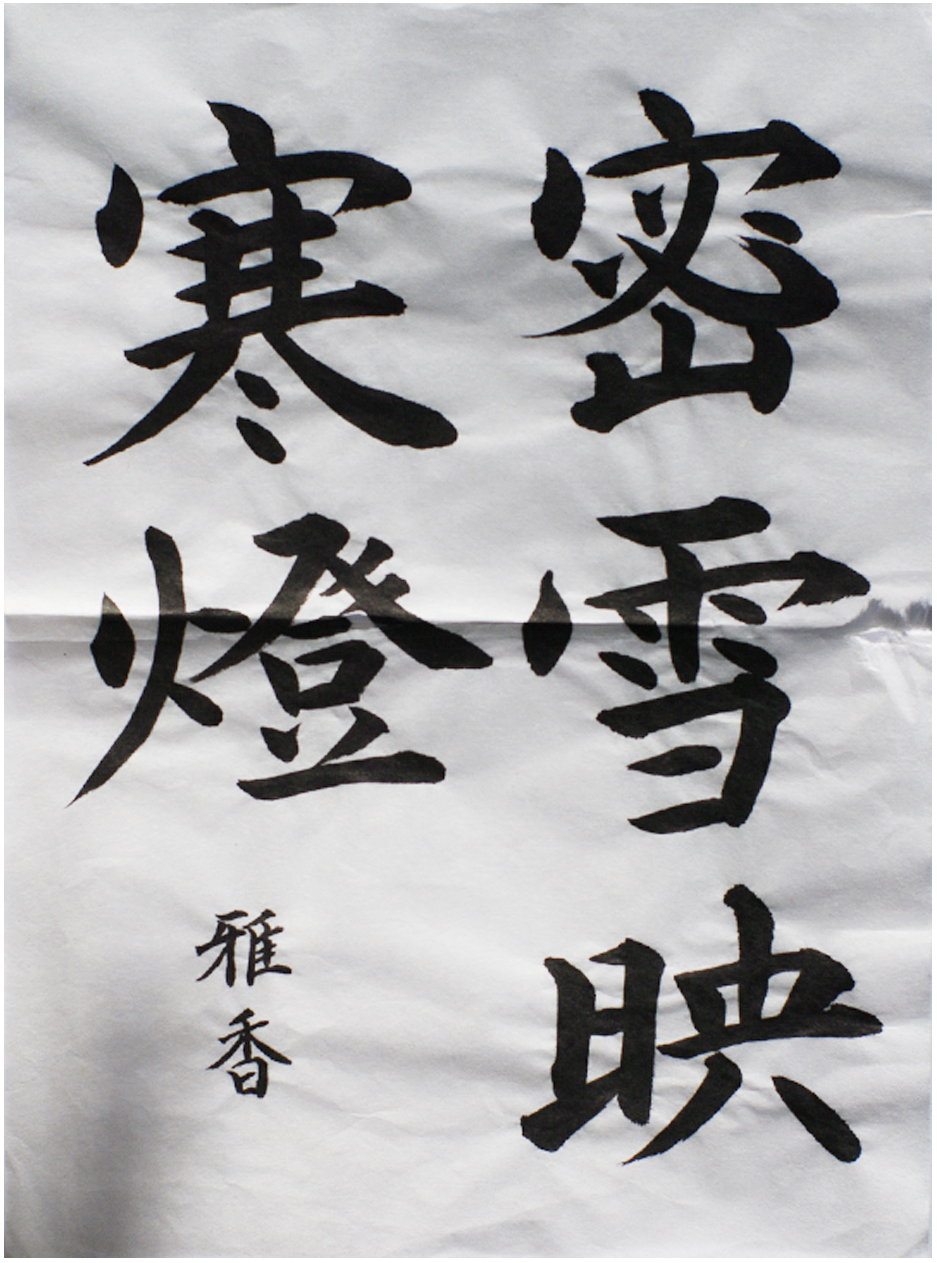 密雪映
寒燈
雅香